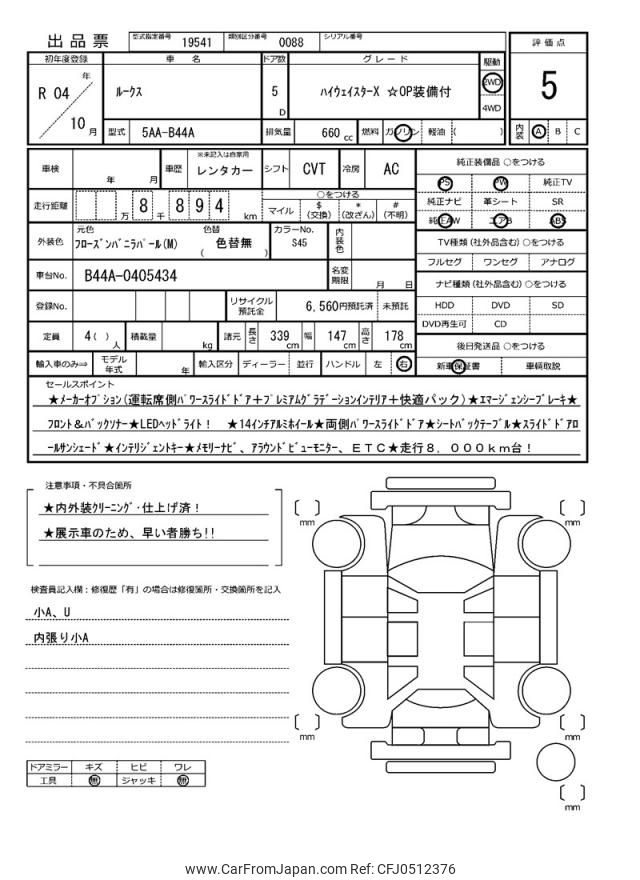 出品票
型式指定番号 19541 類別区分番号 0088 シリアル番号
評価点
5
内装 A B C
初年度登録 車名 ドア数 グレード 駆動
R 04 年 10 月
ﾙｰｸｽ 5 D ﾊｲｳｪｲｽﾀｰX ☆OP装備付 2WD 4WD
型式 5AA-B44A 排気量 660 cc 燃料 ガソリン 軽油 ( )
車検 年 月 車歴 ※未記入は自家用 レンタカー シフト CVT 冷房 AC
走行距離 万 8 千 8 9 4 km
○をつける
マイル $(交換) *(改ざん) #(不明)
外装色 元色 ﾌﾛｰｽﾞﾝﾊﾞﾆﾗﾊﾟｰﾙ(M) 色替 ( 色替無 ) カラーNo. S45 内装色
車台No. B44A-0405434 名変期限 月 日
登録No. リサイクル預託金 6,560円預託済 未預託
定員 4 ( ) 人 積載量 kg 諸元 長さ 339 cm 幅 147 cm 高さ 178 cm
輸入車のみ⇒ モデル年式 年 輸入区分 ディーラー 並行 ハンドル 左 右
純正装備品 ○をつける
PS PW 純正TV
純正ナビ 革シート SR
純正AW エアB ABS
TV種類 (社外品含む) ○をつける
フルセグ ワンセグ アナログ
ナビ種類 (社外品含む) ○をつける
HDD DVD SD
DVD再生可 CD
後日発送品 ○をつける
新車保証書 車輌取説
セールスポイント
★ﾒｰｶｰｵﾌﾟｼｮﾝ(運転席側ﾊﾟﾜｰｽﾗｲﾄﾞﾄﾞｱ+ﾌﾟﾚﾐｱﾑｸﾞﾗﾃﾞｰｼｮﾝｲﾝﾃﾘｱ+快適パック)★ｴﾏｰｼﾞｪﾝｼｰﾌﾞﾚｰｷ★
ﾌﾛﾝﾄ&ﾊﾞｯｸｿﾅｰ★LEDﾍｯﾄﾞﾗｲﾄ! ★14ｲﾝﾁｱﾙﾐﾎｲｰﾙ★両側ﾊﾟﾜｰｽﾗｲﾄﾞﾄﾞｱ★ｼｰﾄﾊﾞｯｸﾃｰﾌﾞﾙ★ｽﾗｲﾄﾞﾄﾞｱﾛ
ｰﾙｻﾝｼｪｰﾄﾞ★ｲﾝﾃﾘｼﾞｪﾝﾄｷｰ★ﾒﾓﾘｰﾅﾋﾞ、ｱﾗｳﾝﾄﾞﾋﾞｭｰﾓﾆﾀｰ、ＥＴＣ★走行８，０００ｋｍ台！
注意事項・不具合箇所
★内外装ｸﾘｰﾆﾝｸﾞ･仕上げ済！
★展示車のため、早い者勝ち!!
検査員記入欄：修復歴「有」の場合は修復箇所・交換箇所を記入
小A、U
内張り小A
ドアミラー キズ ヒビ ワレ
工具 無 ジャッキ 無
mm
mm
mm
mm
mm
www.CarFromJapan.com Ref: CFJ0512376